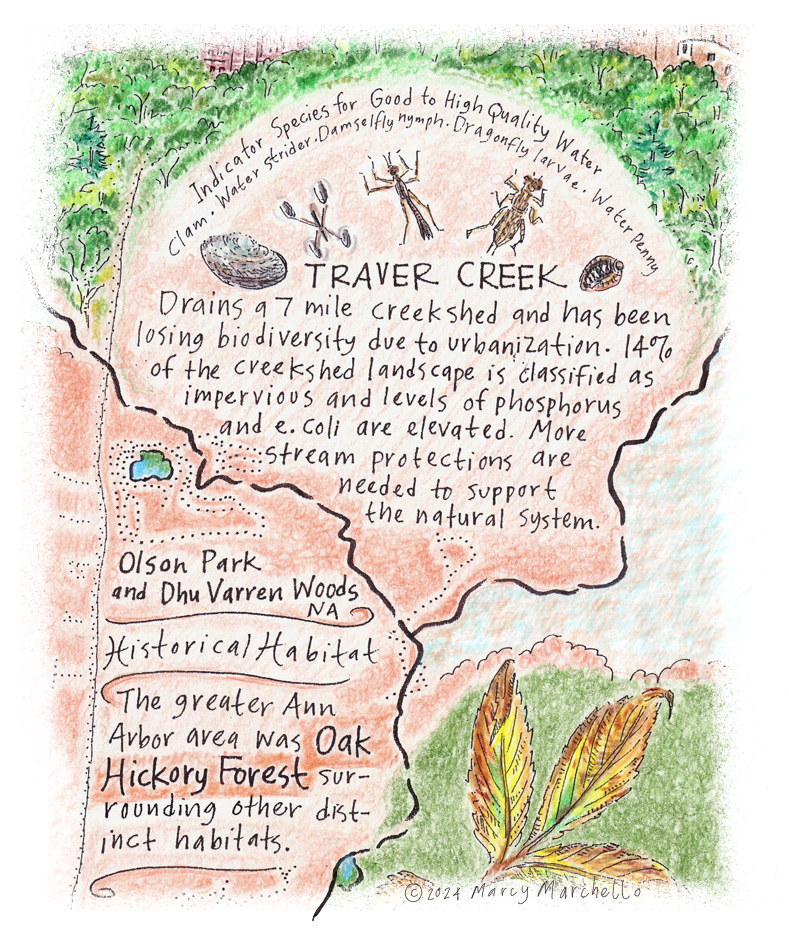 Indicator Species for Good to High Quality Water
Clam. Water strider. Damselfly nymph. Dragonfly larvae. Water Penny
TRAVER CREEK
Drains a 7 mile creekshed and has been
losing biodiversity due to urbanization. 14%
of the creekshed landscape is classified as
impervious and levels of phosphorus
and e. coli are elevated. More
stream protections are
needed to support
the natural system.
Olson Park
and Dhu Varren Woods
NA
Historical Habitat
The greater Ann
Arbor area was Oak
Hickory Forest sur-
rounding other dist-
inct habitats.
©2024 Marcy Marchello